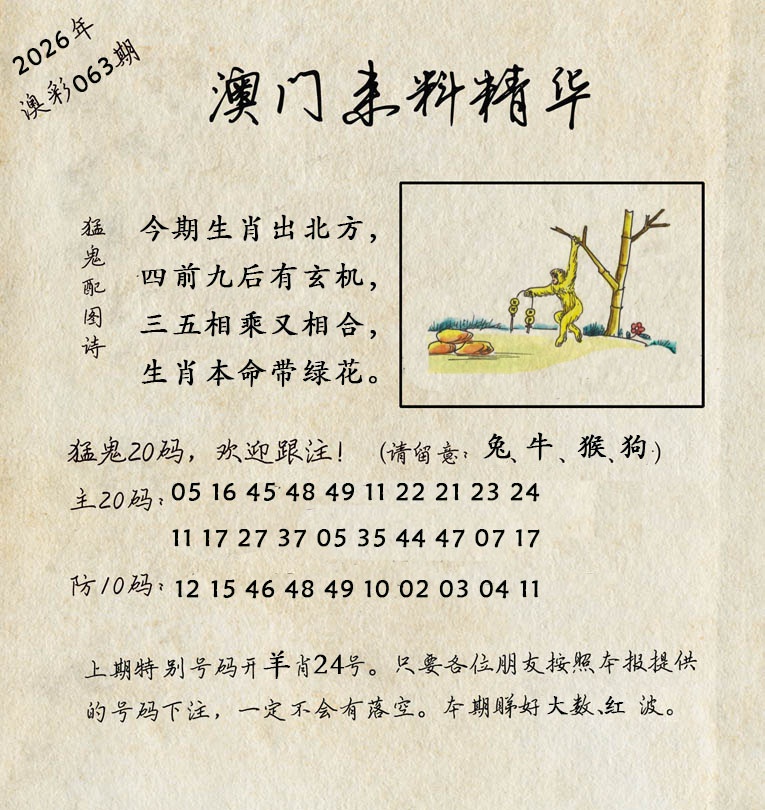 2026年
澳彩063期
澳门来料精华
猛鬼配图诗
今期生肖出北方，
四前九后有玄机，
三五相乘又相合，
生肖本命带绿花。
猛鬼20码，欢迎跟注！（请留意：兔、牛、猴、狗）
主20码：05 16 45 48 49 11 22 21 23 24
11 17 27 37 05 35 44 47 07 17
防10码：12 15 46 48 49 10 02 03 04 11
上期特别号码开羊肖24号。只要各位朋友按照本报提供
的号码下注，一定不会有落空。本期睇好大数、红 波。